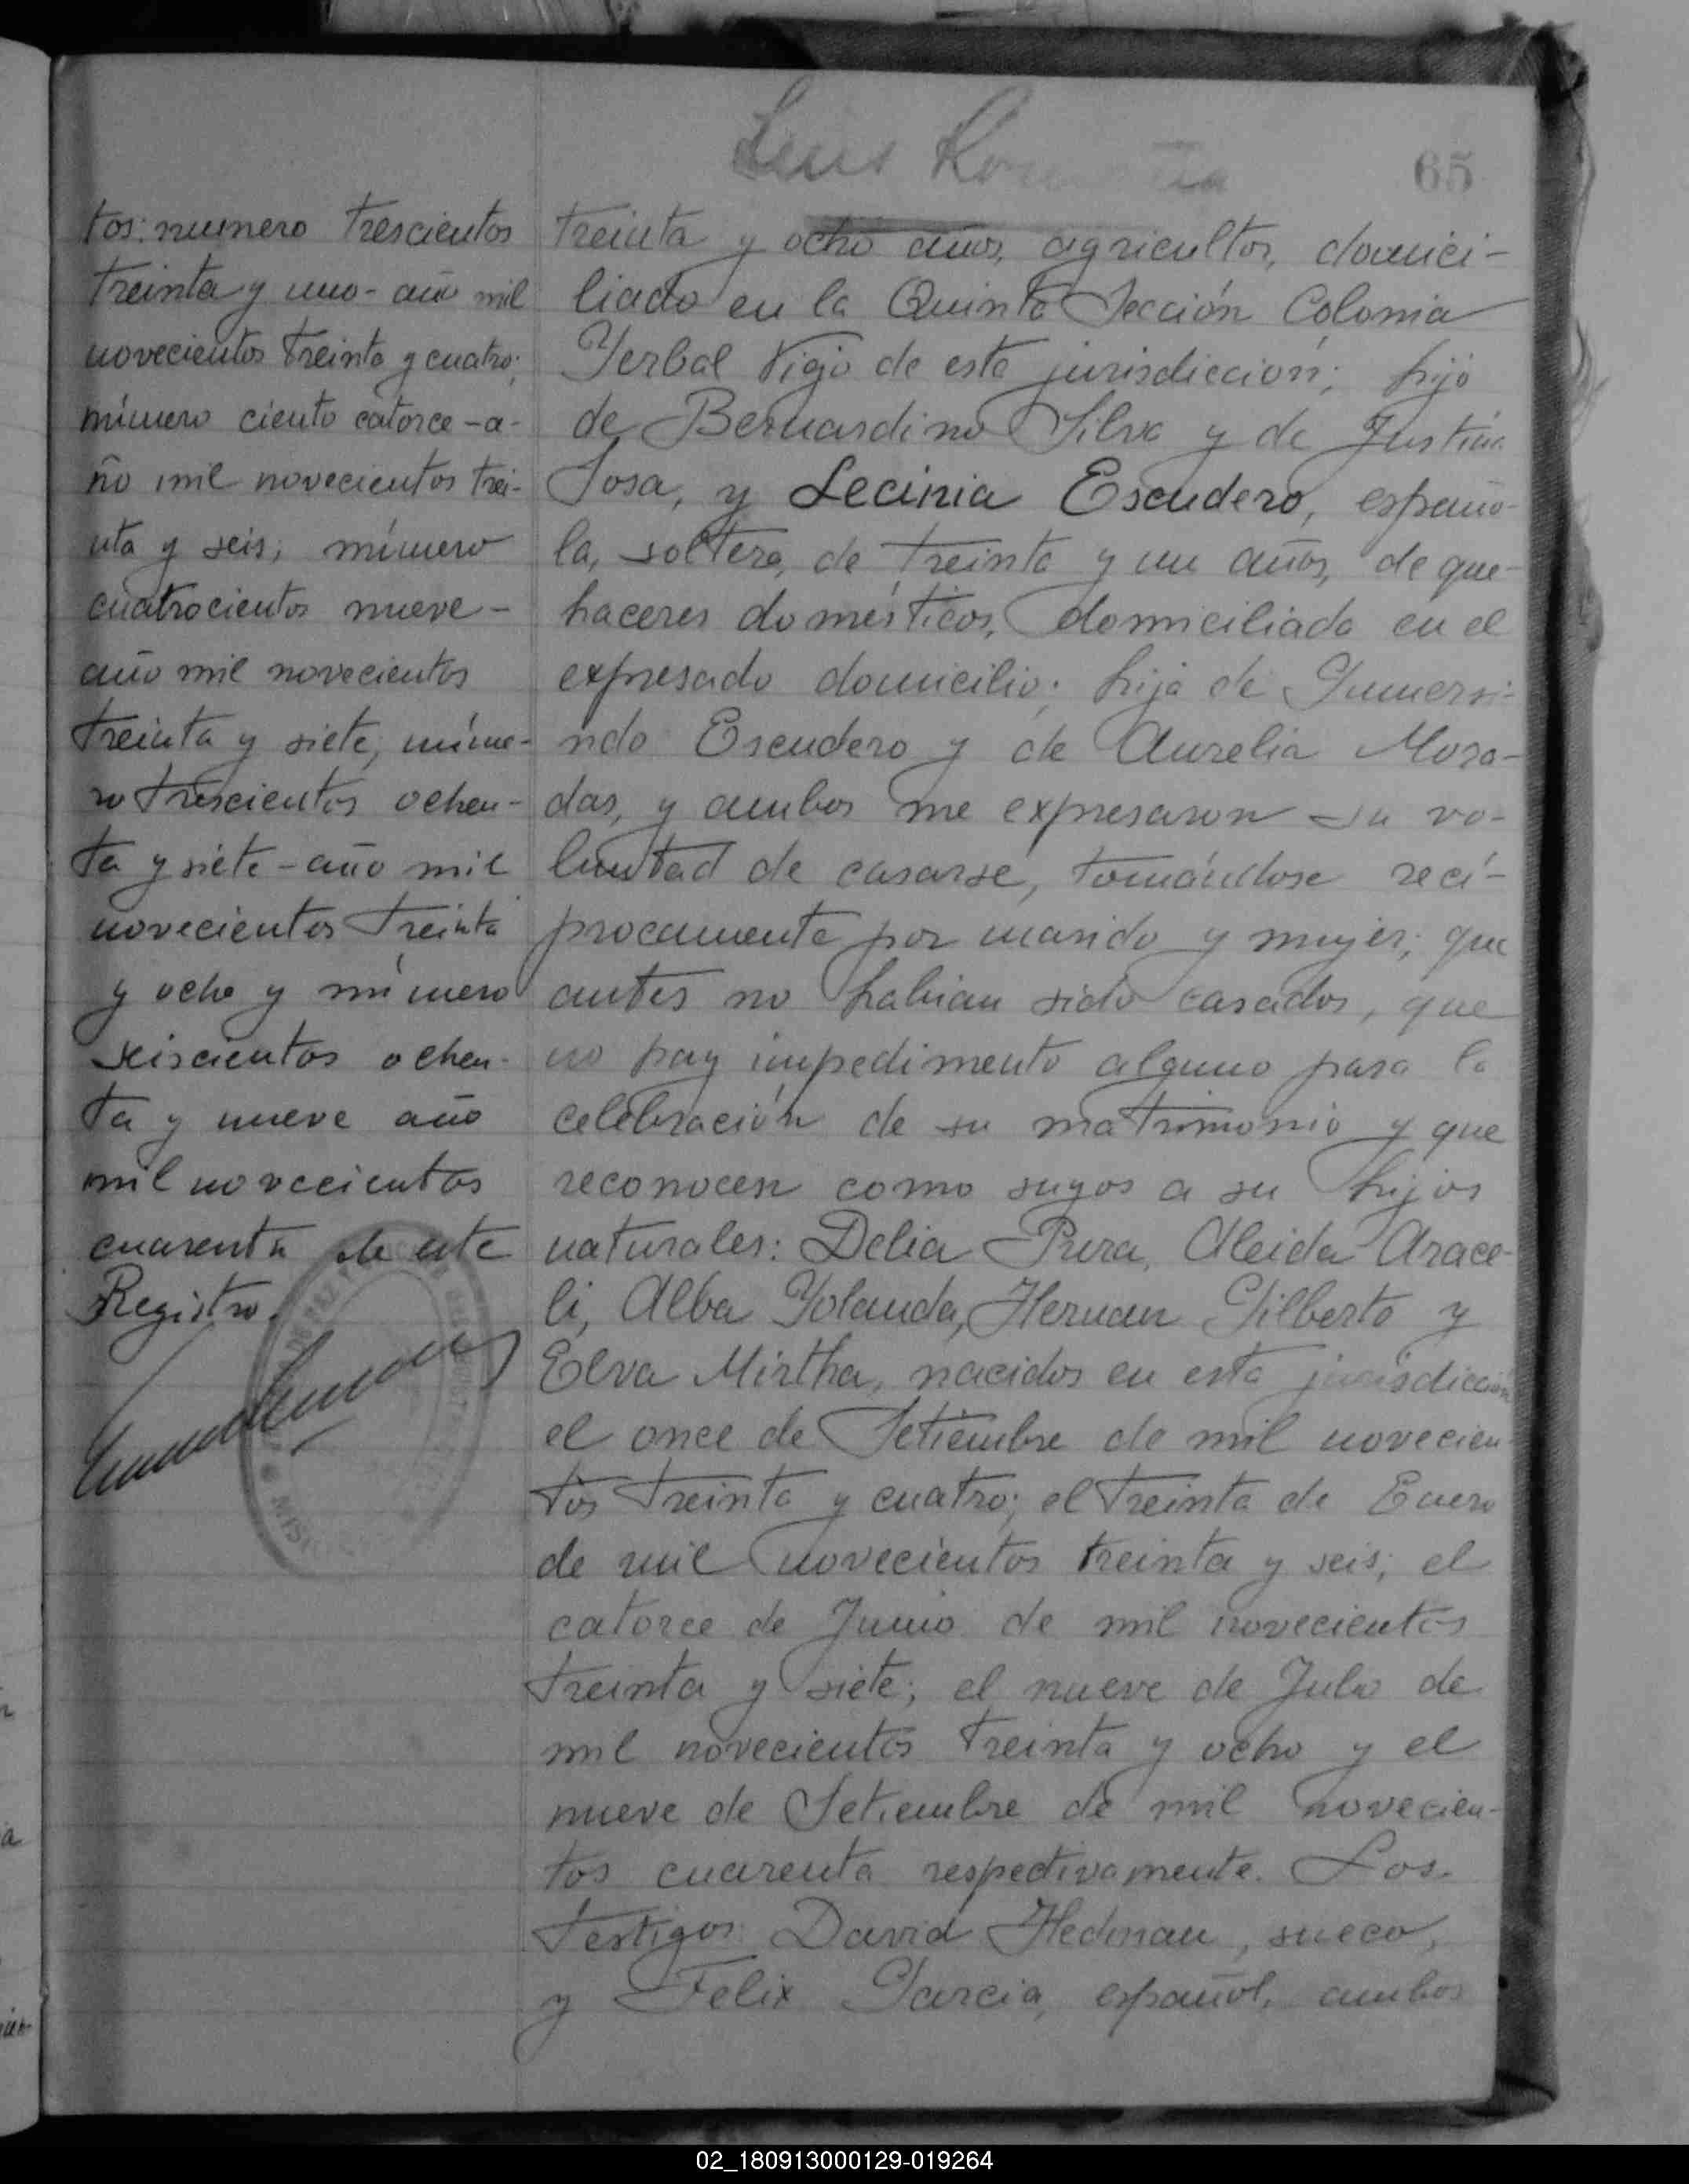 Luis
65
tos: numero trescientos
treinta y uno - año mil
novecientos treinta y cuatro;
número ciento catorce - a-
ño mil novecientos trei-
nta y seis; número
cuatrocientos nueve -
año mil novecientos
treinta y siete; núme-
ro trescientos ochen-
ta y siete - año mil
novecientos treinta
y ocho y número
seiscientos ochen-
ta y nueve año
mil novecientos
cuarenta de este
Registro.
treinta y ocho años, agricultor, domici-
liado en la Quinta Sección Colonia
Yerbal Viejo de esta jurisdicción; hijo
de Bernardino Silva y de Justina
Sosa, y Lecinia Escudero, españo-
la, soltera, de treinta y un años, de que-
haceres domésticos, domiciliada en el
expresado domicilio; hija de Gumersi-
ndo Escudero y de Aurelia Mora-
das, y ambos me expresaron su vo-
luntad de casarse, tomándose recí-
procamente por marido y mujer; que
antes no habian sido casados, que
no hay impedimento alguno para la
celebración de su matrimonio y que
reconocen como suyos a su hijos
naturales: Delia Pura, Aleida Arace-
li, Alba Yolanda, Hernan Gilberto y
Elva Mirtha, nacidos en esta jurisdicción
el once de Setiembre de mil novecien-
tos treinta y cuatro; el treinta de Enero
de mil novecientos treinta y seis; el
catorce de Junio de mil novecientos
treinta y siete; el nueve de Julio de
mil novecientos treinta y ocho y el
nueve de Setiembre de mil novecien-
tos cuarenta respectivamente. Los
testigos: David Hedman, sueco,
y Felix Garcia, español, ambos
02_180913000129-019264